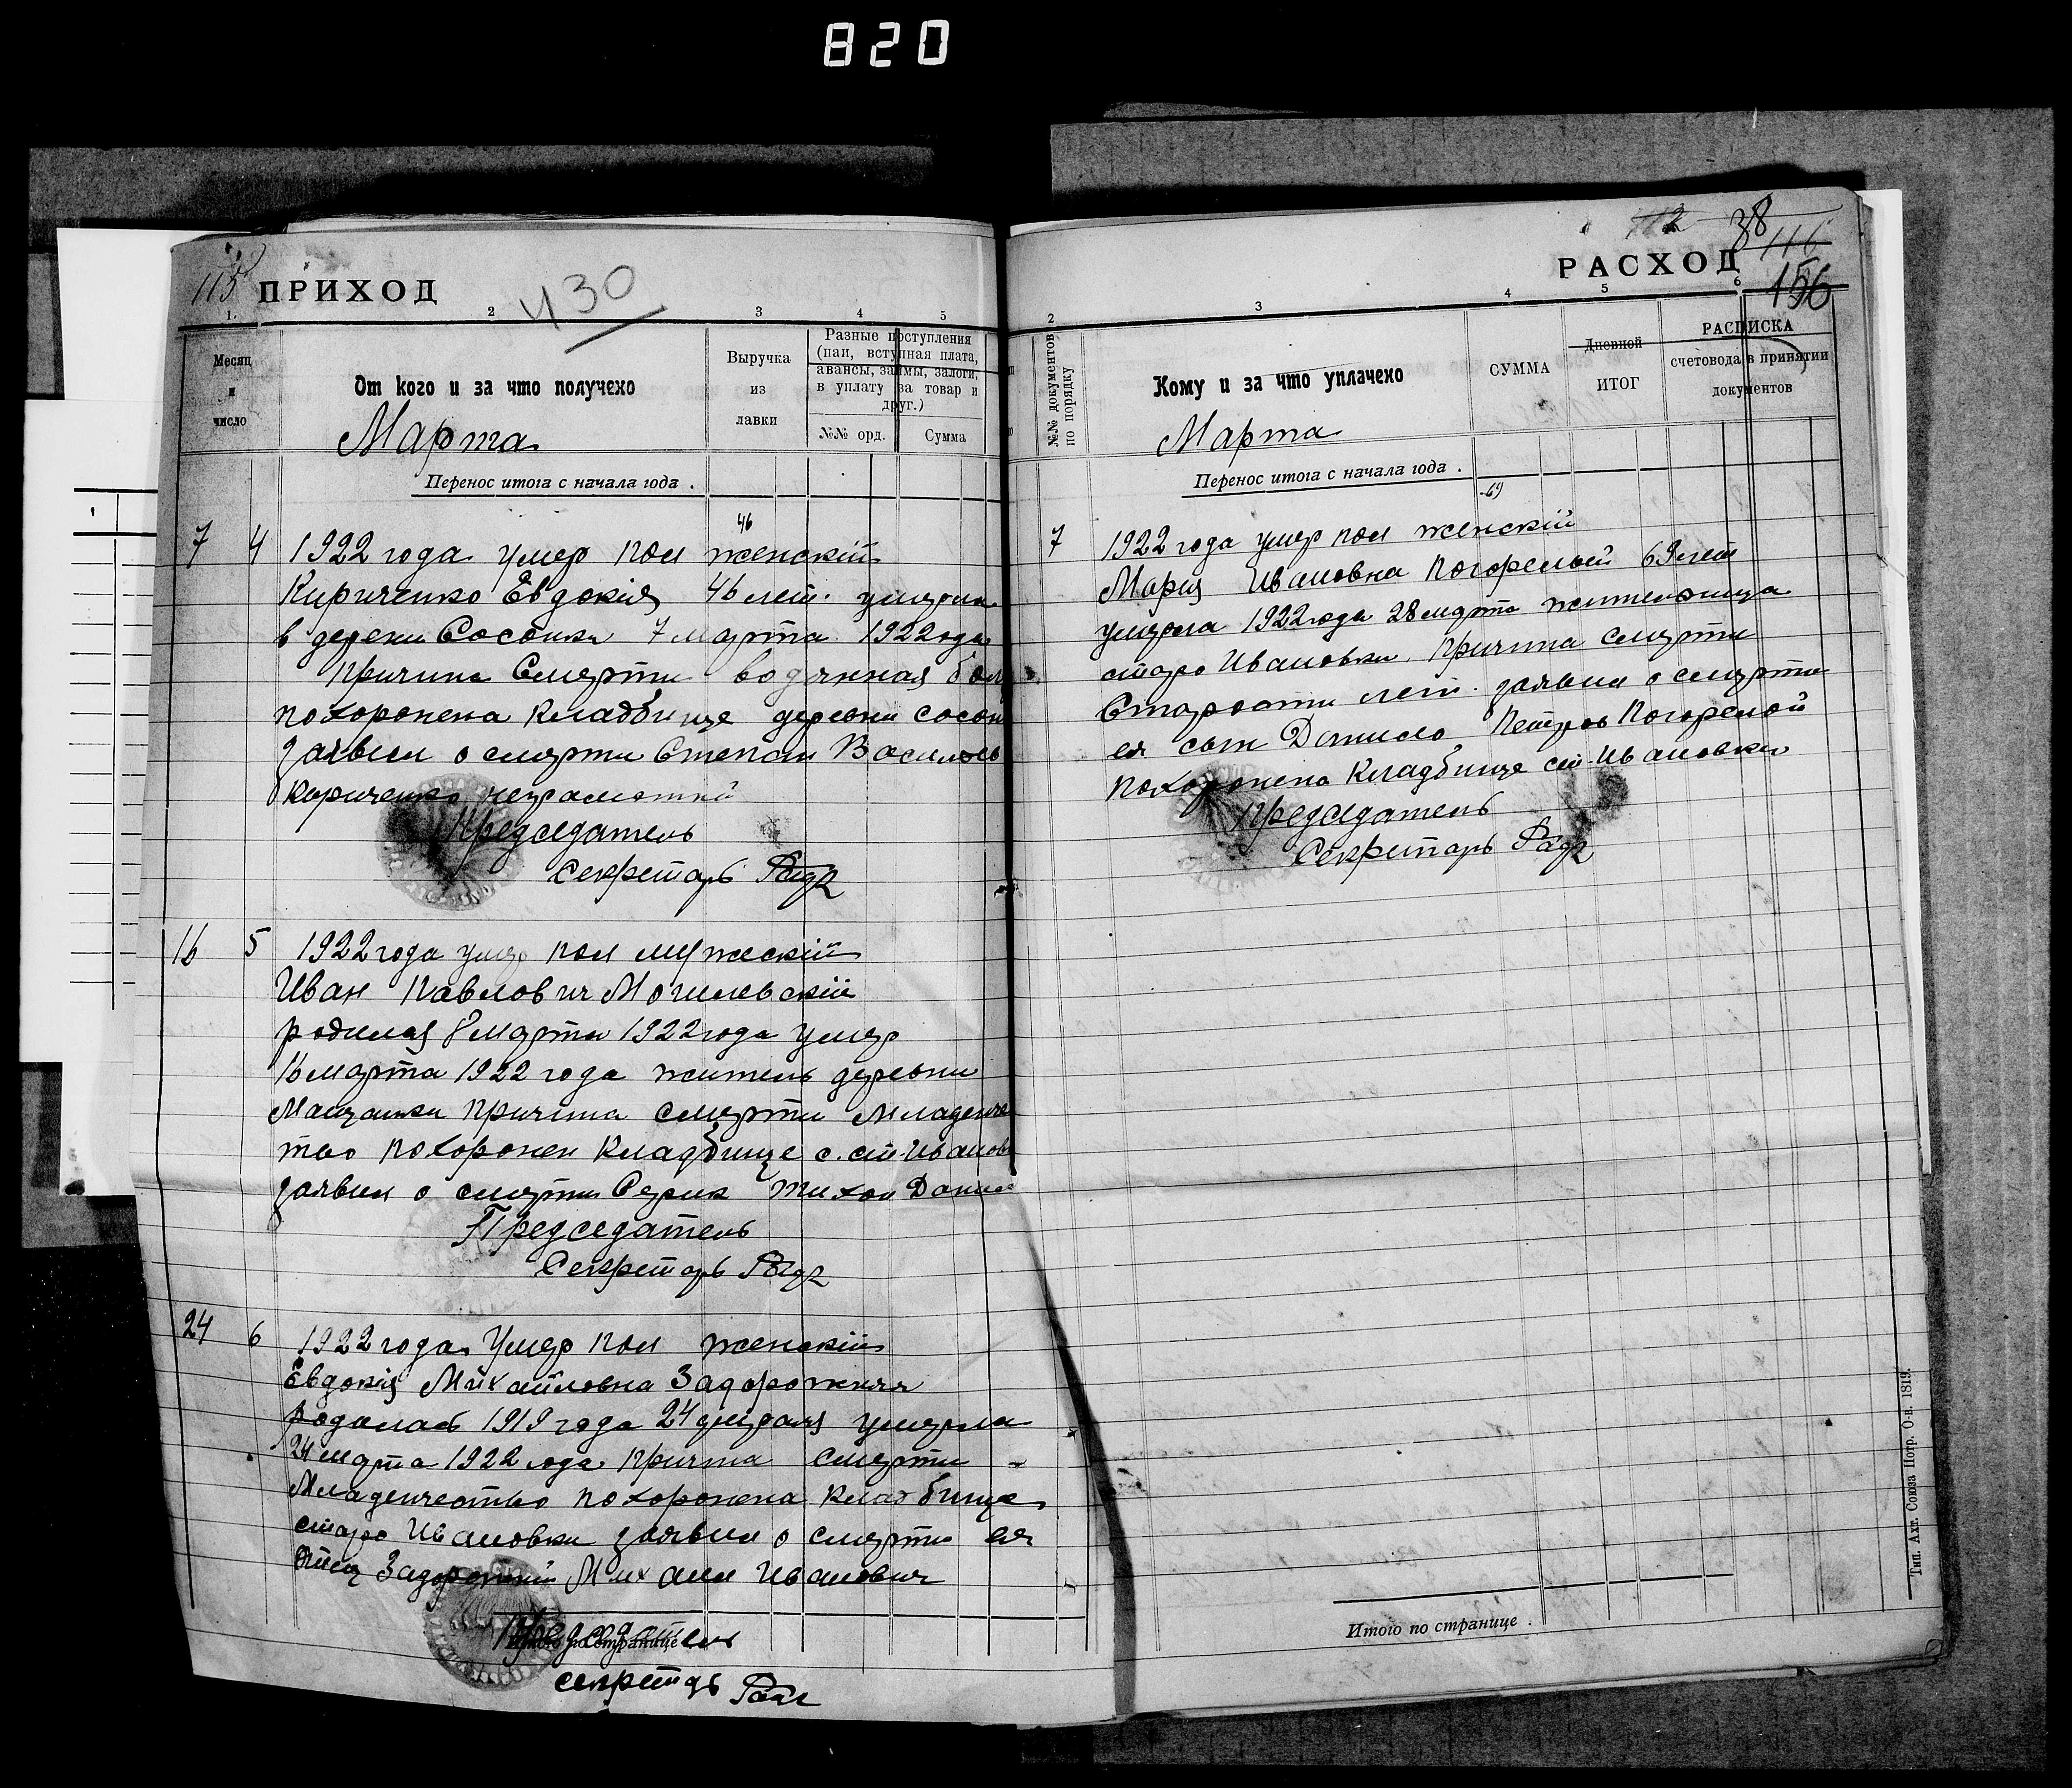 820
115
ПРИХОД
430
1.
2
3
4
5
Месяц
и
число
От кого и за что получено
Выручка
из
лавки
Разные поступления
(паи, вступная плата,
авансы, займы, залоги,
в уплату за товар и
друг.)
№№ орд.
Сумма
Марта
Перенос итога с начала года .
46
7 4 1922 года умер пол женский
Кириченко Евдокия 46 лет. умерла
в дереви Сосонки 7 марта 1922 года
причина Смерти водянная бол
похоронена кладбище деревни сосон
заявил о смерти Степан Василев
Кириченко неграмотний
Председатель
Секретарь
16 5 1922 года умер пол мужеский
Иван Павлович Могилевский
родился 8 марта 1922 года умер
16 марта 1922 года житель деревни
причина смерти Младенче
тво похоронен кладбище с. ст. Иванов
заявил о смерти Тихон Данил
Председатель
Секретарь
24 6 1922 года умер пол женский
Евдокия Михайловна Задорожняя
родилась 1919 года 24 умерла
24 марта 1922 года причина смерти
Младенчество похоронена кладбище
старо Ивановки заявил о смерти ея
Отец Задорожний Михаил Иванович
Итого по странице
Председатель
секретарь
112
38
116
РАСХОД
156
2
3
4
5
6
№№ документов
по порядку
Кому и за что уплачено
СУММА
Дневной
ИТОГ
РАСПИСКА
счетовода в принятии
документов
Марта
Перенос итога с начала года .
69
7 1922 года умер пол женский
Мария Ивановна Погорелый 69 лет
умерла 1922 года 28 марта жительница
старо Ивановки. Причина смерти
Старости лет. заявил о смерти
ея сын Данило Петров Погорелой
похоронена Кладбище ст. Ивановки
Председатель
Секретарь
Итого по странице .
Тип. Ахт. Союза Потр. О-в. 1819.